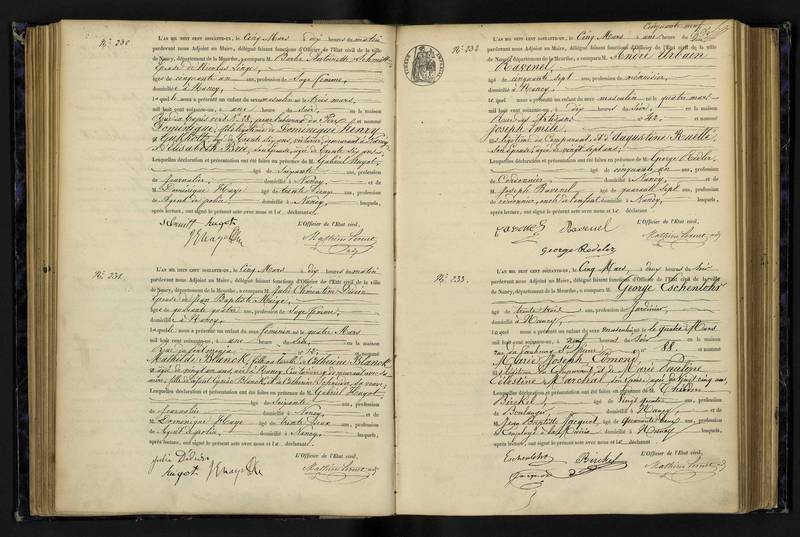 N.° 230
L'AN MIL HUIT CENT SOIXANTE-UN, le Cinq Mars à dix heures du matin
pardevant nous Adjoint au Maire, délégué faisant fonctions d'Officier de l'Etat civil de la ville
de Nancy, département de la Meurthe, a comparu M. Barbe Antoinette Schmitt
Epouse de Nicolas
âgé de cinquante un ans, profession de Sage femme,
domicilié à Nancy,
lequel nous a présenté un enfant du sexe masculin né le trois mars,
mil huit cent soixante-un, à une heure du soir, en la maison
et nommé
Dominique, fils légitime de Dominique Henry
âgé de trente six ans, demeurant à Nancy
d'Elisabeth son Epouse, âgée de trente six ans
Lesquelles déclaration et présentation ont été faites en présence de M. Gabriel Hugot,
âgé de Soixante ans, profession
de journalier domicilié à Nancy, et de
M. Dominique Haye âgé de trente deux ans, profession
de Agent de police domicilié à Nancy, lesquels,
après lecture, ont signé le présent acte avec nous et l déclarant
L'Officier de l'Etat civil,
Schmitt Hugot
N.° 231.
L'AN MIL HUIT CENT SOIXANTE-UN, le Cinq Mars à dix heures du matin
pardevant nous Adjoint au Maire, délégué faisant fonctions d'Officier de l'Etat civil de la ville
de Nancy, département de la Meurthe, a comparu M. Julie Clémentine Didier
Epouse de Jean Baptiste
âgé de quarante quatre ans, profession de Sage femme,
domicilié à Nancy,
lequel nous a présenté un enfant du sexe féminin né le quatre Mars
mil huit cent soixante-un, à une heure du Soir, en la maison
N.° 12, et nommé
Mathilde Blanck, fille naturelle de Catherine Blanck
âgée de vingt un ans, née à Nancy, Couturière y demeurant avec sa
mère, fille de Blanck, & de Catherine Schneider, sa veuve,
Lesquelles déclaration et présentation ont été faites en présence de M. Gabriel Hugot,
âgé de Soixante ans, profession
de journalier domicilié à Nancy, et de
M. Dominique Haye âgé de trente deux ans, profession
de Agent de police domicilié à Nancy, lesquels,
après lecture, ont signé le présent acte avec nous et l déclarant
L'Officier de l'Etat civil,
Julie Didier
Hugot
Cinquante neuf
N.° 232.
L'AN MIL HUIT CENT SOIXANTE-UN, le Cinq Mars à une heure du Soir
pardevant nous Adjoint au Maire, délégué faisant fonctions d'Officier de l'Etat civil de la ville
de Nancy, département de la Meurthe, a comparu M. André Urbain
Ravenel
âgé de cinquante sept ans, profession de menuisier
domicilié à Nancy,
lequel nous a présenté un enfant du sexe masculin né le quatre mars
mil huit cent soixante-un, à dix heures du Soir, en la maison
Rue des Artisans N.° 42, et nommé
Joseph Emile,
fils légitime du Comparant, & d'Augustine Ruelle
son Epouse, âgée de vingt sept ans,
Lesquelles déclaration et présentation ont été faites en présence de M. George Redler
âgé de cinquante un ans, profession
de Cordonnier, domicilié à Nancy, et de
M. Joseph Ravenel âgé de quarante sept ans, profession
de cordonnier, oncle de l'enfant domicilié à Nancy, lesquels,
après lecture, ont signé le présent acte avec nous et l déclarant
L'Officier de l'Etat civil,
Ravenel
George Redeler
N.° 233.
L'AN MIL HUIT CENT SOIXANTE-UN, le Cinq Mars, à deux heures du Soir
pardevant nous Adjoint au Maire, délégué faisant fonctions d'Officier de l'Etat civil de la ville
de Nancy, département de la Meurthe, a comparu M. George Eschenlohr
âgé de trente trois ans, profession de Jardinier,
domicilié à Nancy,
lequel nous a présenté un enfant du sexe masculin né le quatre Mars
mil huit cent soixante-un, à neuf heures du Soir en la maison
rue du faubourg St Pierre n.° 88, et nommé
Marie Joseph Edmond,
fils légitime du Comparant, & de Marie Pauline
Célestine Marchal son Epouse, âgée de vingt cinq ans,
Lesquelles déclaration et présentation ont été faites en présence de M.
Birckel âgé de vingt quatre ans, profession
de Boulanger domicilié à Nancy, et de
M. Jean Baptiste Jacquot âgé de quarante deux ans, profession
d'Employé à la Mairie domicilié à Nancy lesquels,
après lecture, ont signé le présent acte avec nous et l déclarant
L'Officier de l'Etat civil,
Eschenlohr Birckel